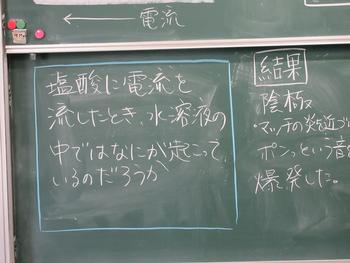 電流
塩酸に電流を
流したとき、水溶液の
中ではなにが起こって
いるのだろうか
結果
陰極
・マッチの炎を近づ
ポンっという音
爆発した。